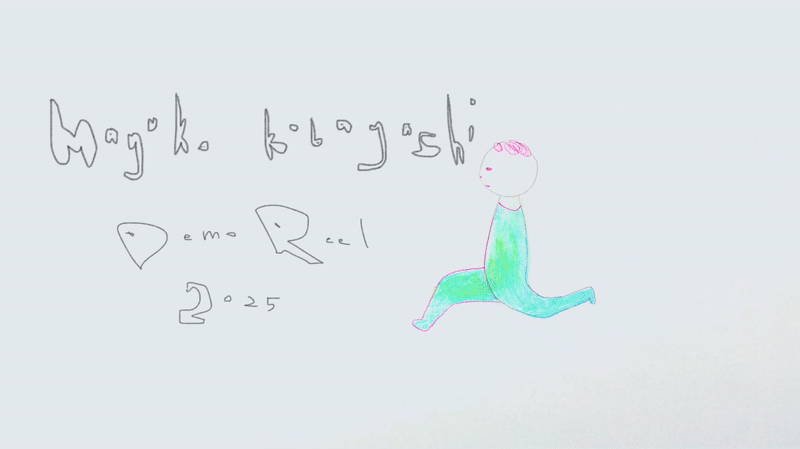 Mayuko Kobayashi
Demo Reel
2025